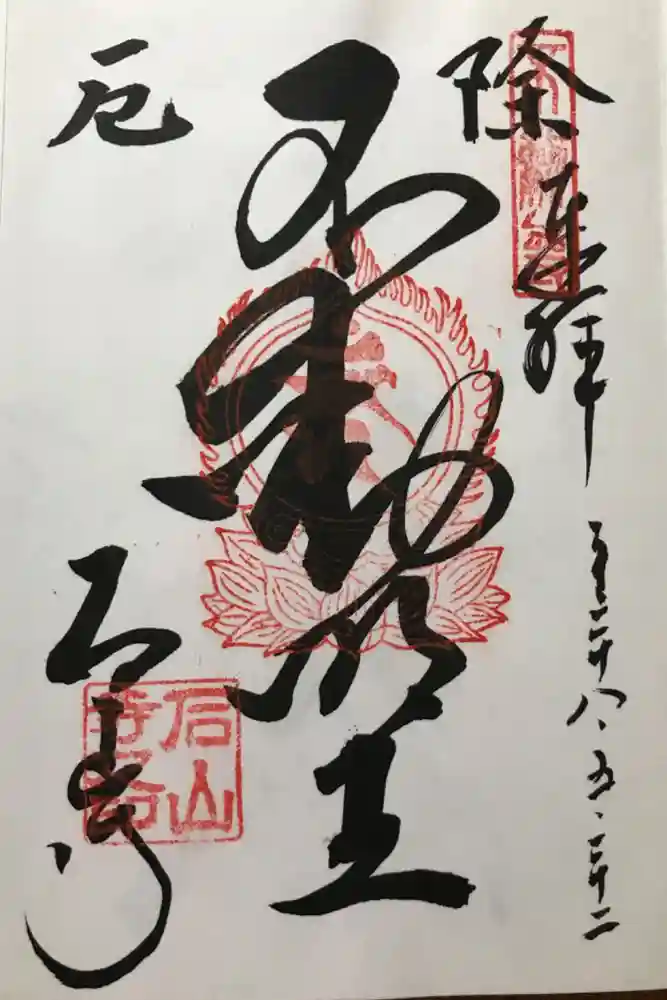 除
奉拝
二十八、五、二十二
不動明王
厄
石山寺
石山